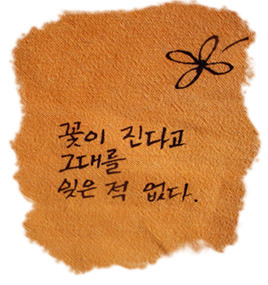 꽃이 진다고
그대를
잊은 적 없다.